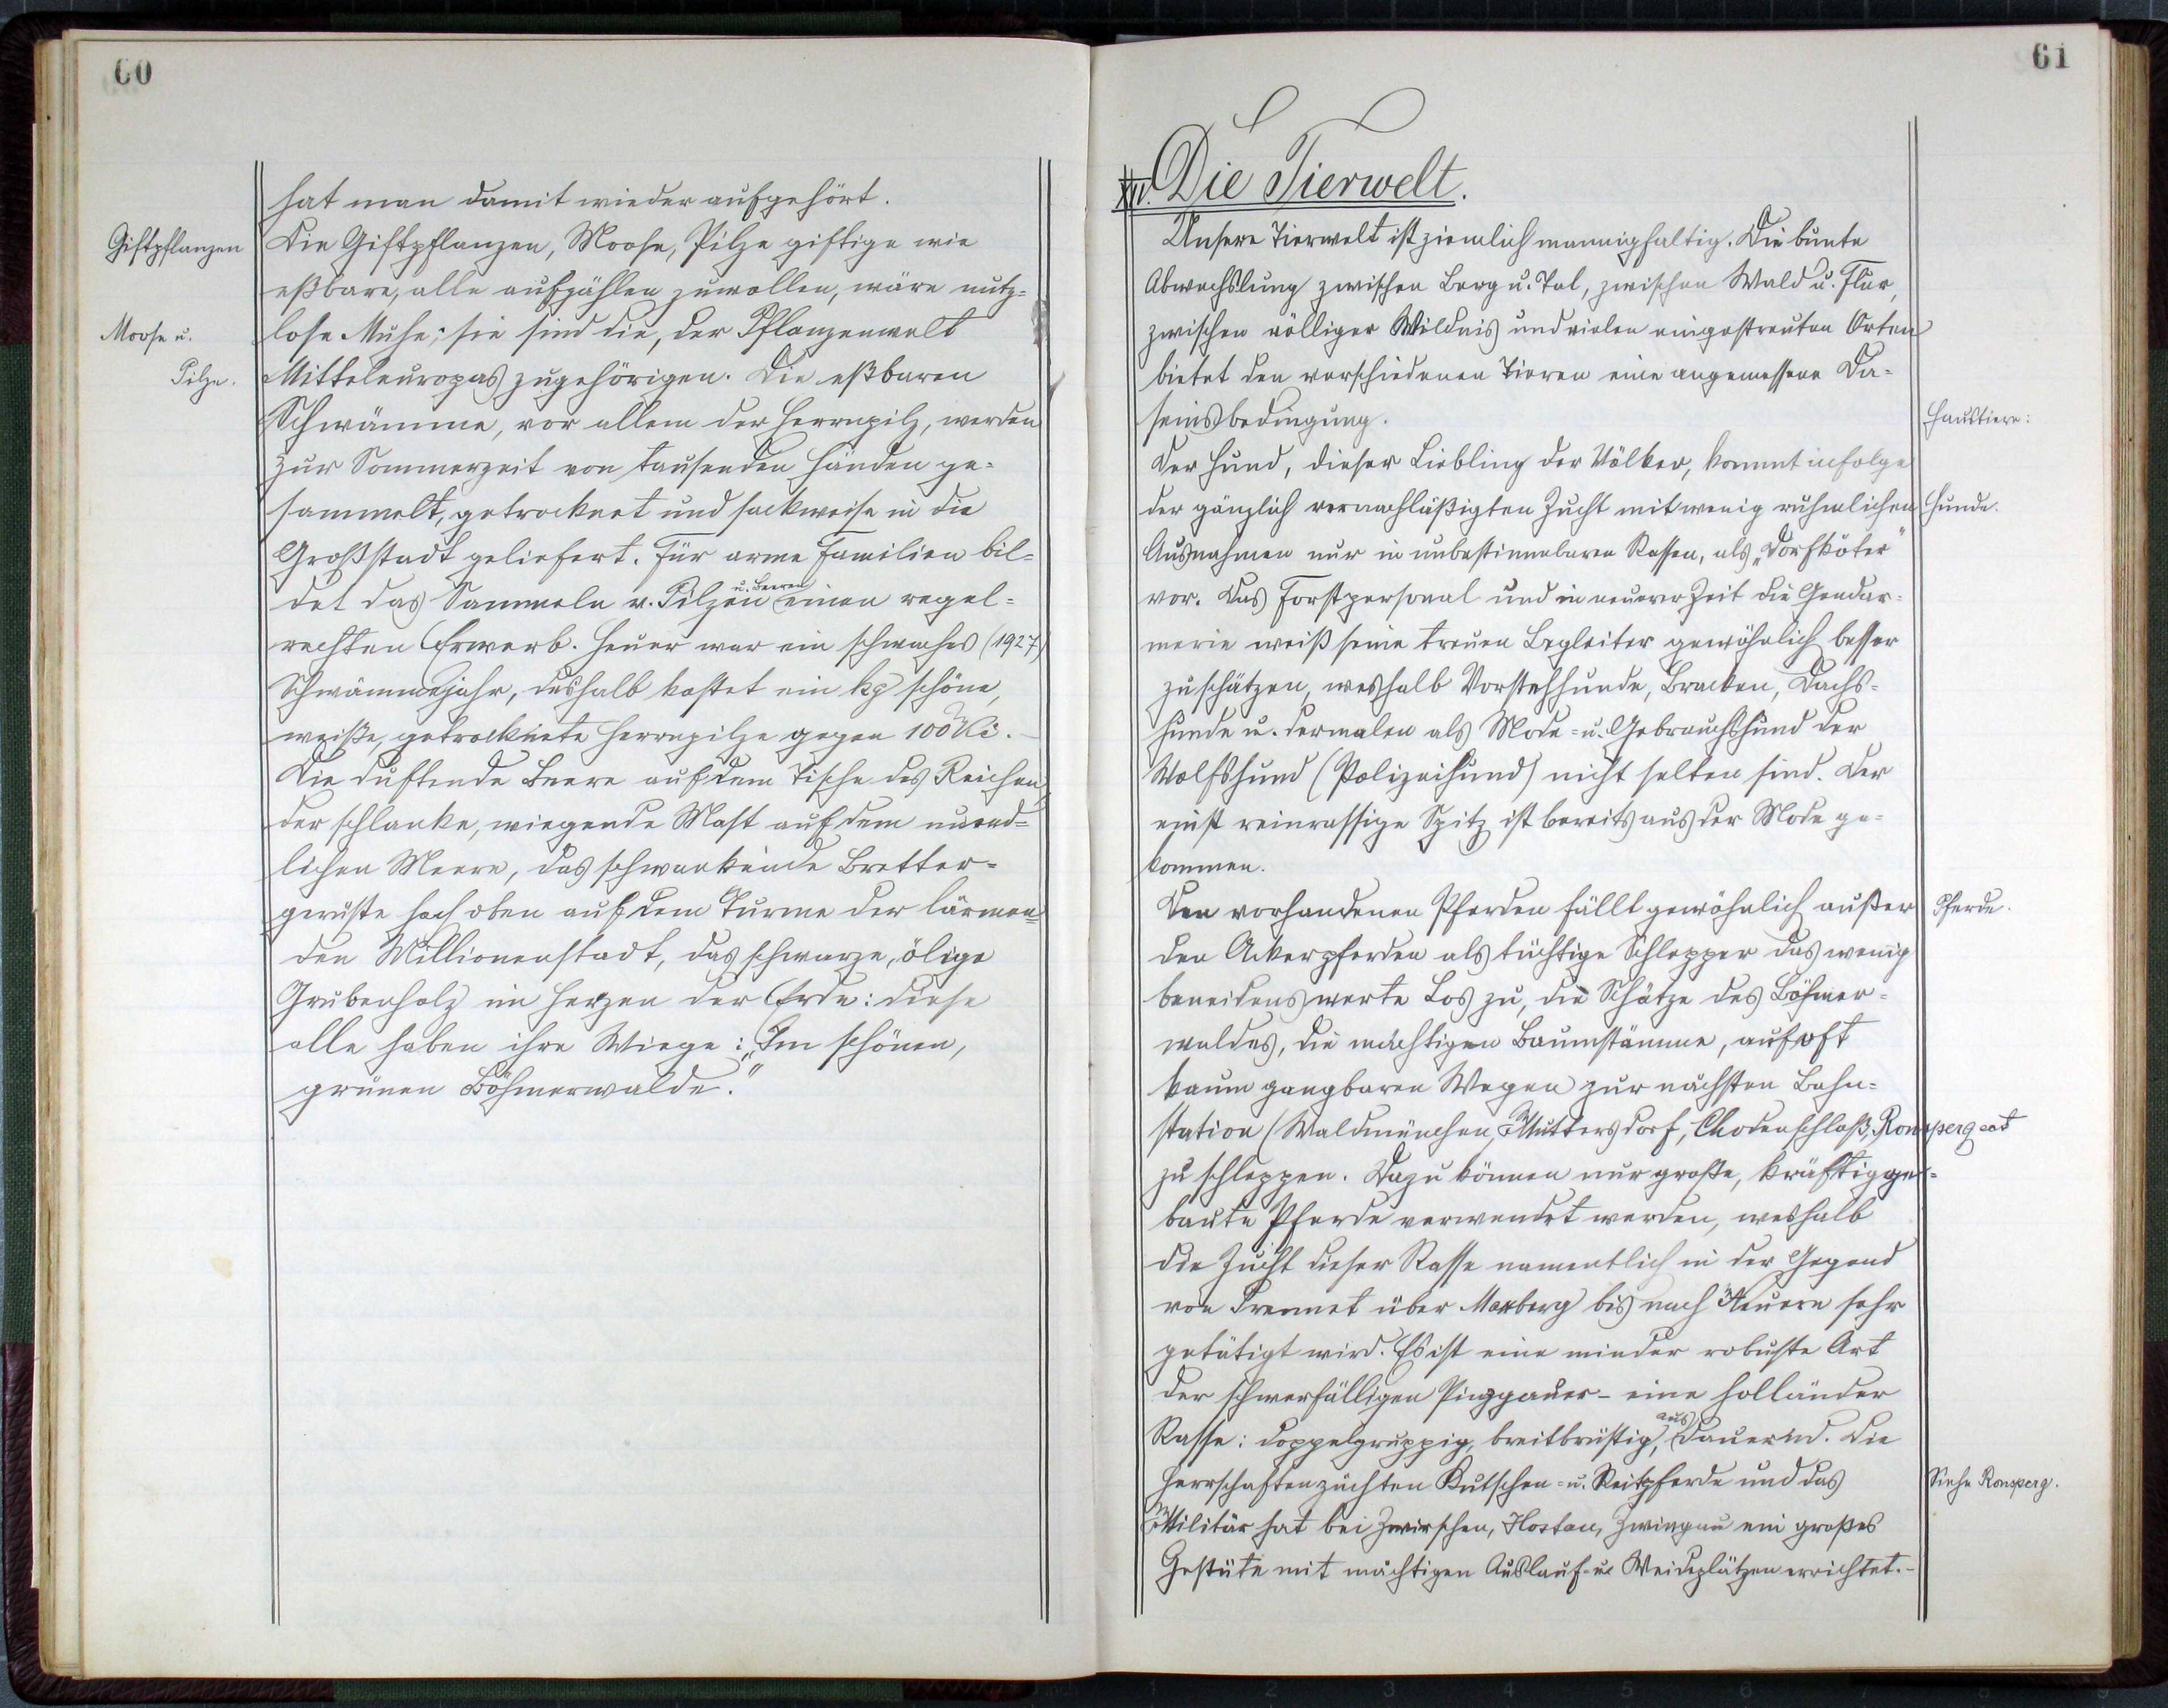 60
hat man damit wieder aufgehört.
Giftpflanzen
Die Giftpflanzen, Moose, Pilze giftige wie
eßbare, alle aufzählen zuwollen, wäre nutz-
Moose u.
lose Muhe; sie sind die, der Pflanzenwelt
Pilze.
Mitteleuropas zugehörigen. Die eßbaren
Schwämme, vor allem der Herrnpilz, werden
zur Sommerzeit von tausenden Händen ge-
sammelt, getrocknet und sackweise in die
Großstadt geliefert. Für arme Familien bil-
det das Sammeln v. Pilzen u. Beeren einen regel-
rechten Erwerb. Heuer war ein schwaches (1927)
Schwämmejahr, deshalb kostet ein kg schöne,
weiße, getrocknete Herrnpilze gegen 100 Kč.-
Die duftende Beere auf dem Tische des Reichen,
der schlanke, wiegende Mast auf dem unend-
lichen Meere, das schwankende Bretter-
gerüste hoch oben auf dem Turme der lärmen-
den Millionenstadt, das schwarze, ölige
Grubenholz im Herzen der Erde: diese
alle haben ihre Wiege: „Im schönen,
grünen Böhmerwalde."
61
XIV. Die Tierwelt.
Unsere Tierwelt ist ziemlich mannigfaltig. Die bunte
Abwechslung zwischen Berg u. Tal, zwischen Wald u. Flur,
zwischen völliger Wildnis und vielen eingestreuten Orten
bietet den verschiedenen Tieren eine angemessene Da-
seinsbedingung.
Haustiere:
Der Hund, dieser Liebling der Völker, kommt infolge
der gänzlich vernachläßigten Zucht mit wenig rühmlichen
Hunde.
Ausnahmen nur in unbestimmbaren Rassen, als „Dorfköter"
vor. Das Forstpersonal und in neuerer Zeit die Gendar-
merie weiß seine treuen Begleiter gewöhnlich besser
zu schätzen, weshalb Vorstehhunde, Bracken, Dachs-
hunde u. dermalen als Mode- u. Gebrauchshund der
Wolfshund (Polizeihund) nicht selten sind. Der
einst reinrassige Spitz ist bereits aus der Mode ge-
kommen.
Den vorhandenen Pferden fällt gewöhnlich außer
Pferde.
den Ackerpferden als tüchtige Schlepper das wenig
beneidenswerte Los zu, die Schätze des Böhmer-
waldes, die mächtigen Baumstämme, auf oft
kaum gangbaren Wegen zur nächsten Bahn-
station (Waldmünchen, Muttersdorf, Chodenschloß, Ronsperg ect
zu schleppen. Dazu können nur große, kräftig ge-
baute Pferde verwendet werden, weshalb
die Zucht dieser Rasse namentlich in der Gegend
von Prennet über Maxberg bis nach Neuern sehr
getätigt wird. Es ist eine minder robuste Art
der schwerfälligen Pinzgauer- eine holländer
Rasse: doppelgruppig, breitbrüstig, ausdauernd. Die
Herrschaften züchten Kutschen- u. Reitpferde und das
Siehe Ronsperg.
Militär hat bei Zwirschen, Hostau, Zwingau ein großes
Gestüte mit mächtigen Auslauf- u. Weideplätzen errichtet.-